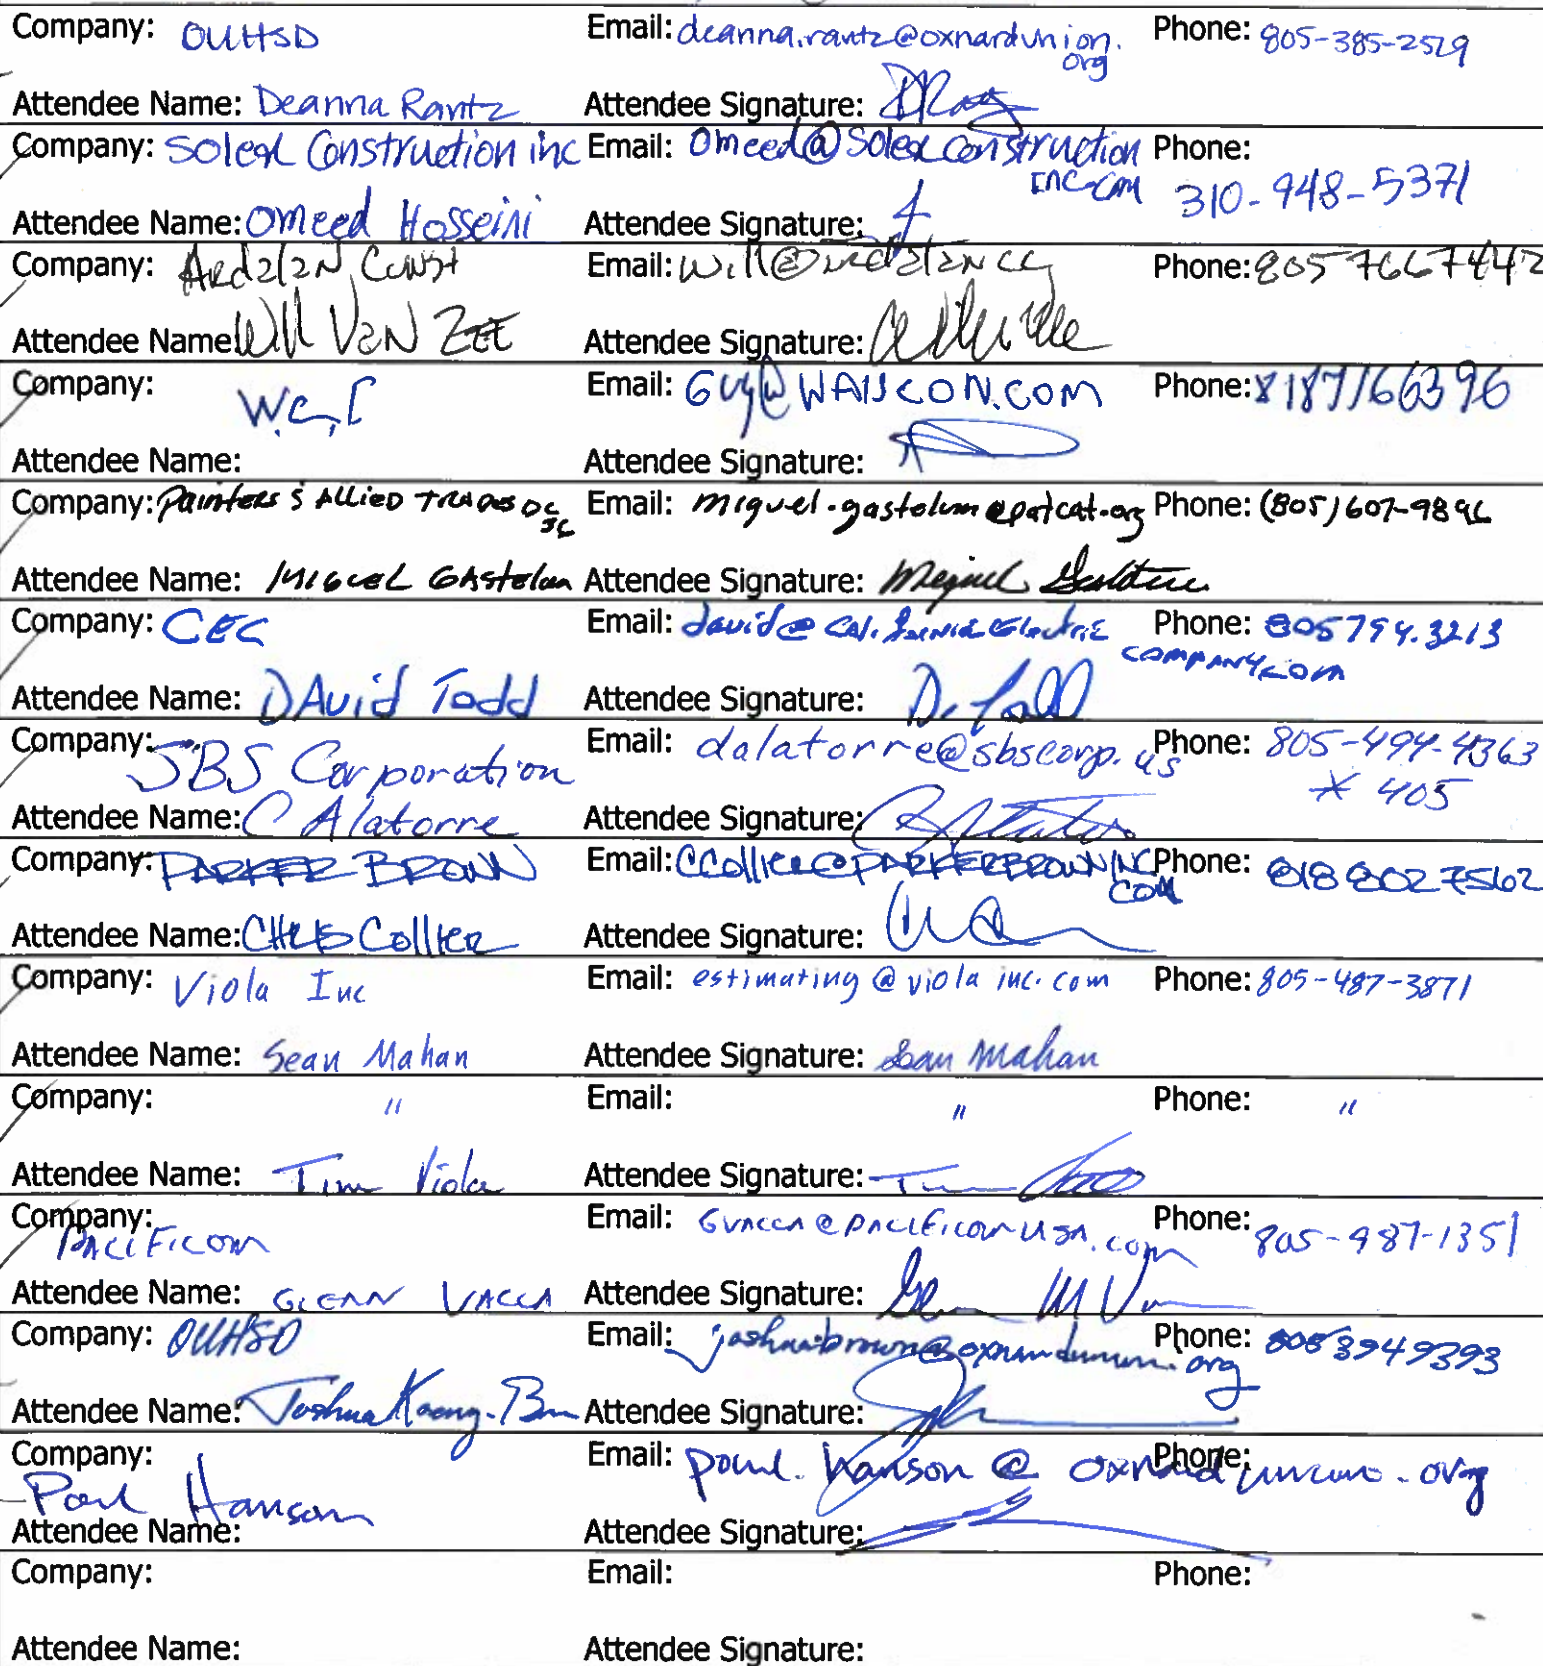 Company: OUHSD Email: deanna.rantz@oxnardunion.org Phone: 805-385-2519
Attendee Name: Deanna Rantz Attendee Signature:
Company: Solex Construction inc Email: Omeed@Solexconstruction Phone:
INC.COM 310-948-5371
Attendee Name: Omeed Hosseini Attendee Signature:
Company: Ardalan Const Email: Will@ardalancc Phone: 805 7667442
Attendee Name: Will Van Zee Attendee Signature:
Company: Email: Guy@WAISCON.COM Phone: 8187166396
Attendee Name: Attendee Signature:
Company: Painters & Allied Trades DC 36 Email: miguel.gastelum@patcat.org Phone: (805)607-9896
Attendee Name: Miguel Gastelum Attendee Signature:
Company: CEC Email: david@CaliforniaElectric Phone: 805794.3213
COMPANY.COM
Attendee Name: David Todd Attendee Signature: D. Todd
Company: SBS Corporation Email: dalatorre@sbscorp.us Phone: 805-494-4363
x 405
Attendee Name: C Alatorre Attendee Signature:
Company: PARKER BROWN Email: CCollier@PARKERBROWNINC Phone: 818 802 7562
COM
Attendee Name: CHRIS Collier Attendee Signature:
Company: Viola Inc Email: estimating@violainc.com Phone: 805-487-3871
Attendee Name: Sean Mahan Attendee Signature: Sean Mahan
Company: " Email: " Phone: "
Attendee Name: Tim Viola Attendee Signature:
Company: PACIFICOM Email: GVACCA@PACIFICOMUSA.com Phone: 805-987-1351
Attendee Name: GLENN VACCA Attendee Signature:
Company: OUHSD Email: joshua.brown@oxnardunion.org Phone: 805 3949393
Attendee Name: Joshua Attendee Signature:
Company: Email: paul.hanson@oxnardunion.org Phone:
Paul Hanson
Attendee Name: Attendee Signature:
Company: Email: Phone:
Attendee Name: Attendee Signature: